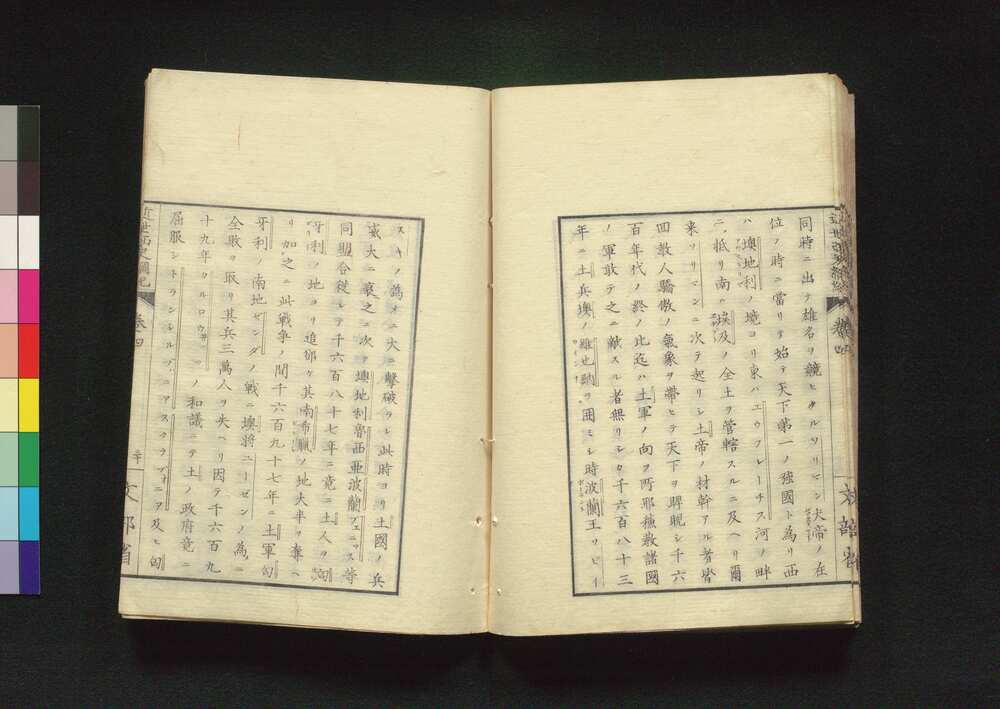 同時ニ出テ雄名ヲ競ヒタルソリマン大帝ノ在
位ノ時ニ當リテ始テ天下第一ノ強國ト為リ西
ハ墺地利ノ境ヨリ東ハエウフレーチス河ノ畔
ニ抵リ南ハ埃及ノ全土ヲ管轄スルニ及ヘリ爾
来ソリマンニ次テ起リシ土帝ノ材幹アル者皆
四敵人驕傲ノ氣象ヲ帶ヒテ天下ヲ睥睨シ千六
百年代ノ終ノ比迄ハ土軍ノ向フ所耶蘇教諸國
ノ軍敢テ之ニ敵スル者無リシカ千六百八十三
年ニ土兵墺ノ維也納ヲ囲ミシ時波蘭王ソビー
スキノ為メニ大ニ擊破ラレ此時ヨリ土國ノ兵
威大ニ衰之ニ次テ墺地利魯西亜波蘭フェニス等
同盟合従シテ千六百八十七年ニ竟ニ土人ヲ匈
牙利ノ地ヨリ追郤ケ其南希臘ノ地大半ヲ奪ヘ
リ加之ニ此戦争ノ間千六百九十七年ニ土軍匈
牙利ノ南地ゼンダノ戰ニ墺将ユーゼンノ為ニ
全敗ヲ取リ其兵三萬人ヲ失ヘリ因テ千六百九
十九年カルロウ井ツノ和議ニテ土ノ政府竟ニ
屈服シトランシルブニアスクラブォニア及ヒ匈
近世西史綱紀 卷四
三十
文部省